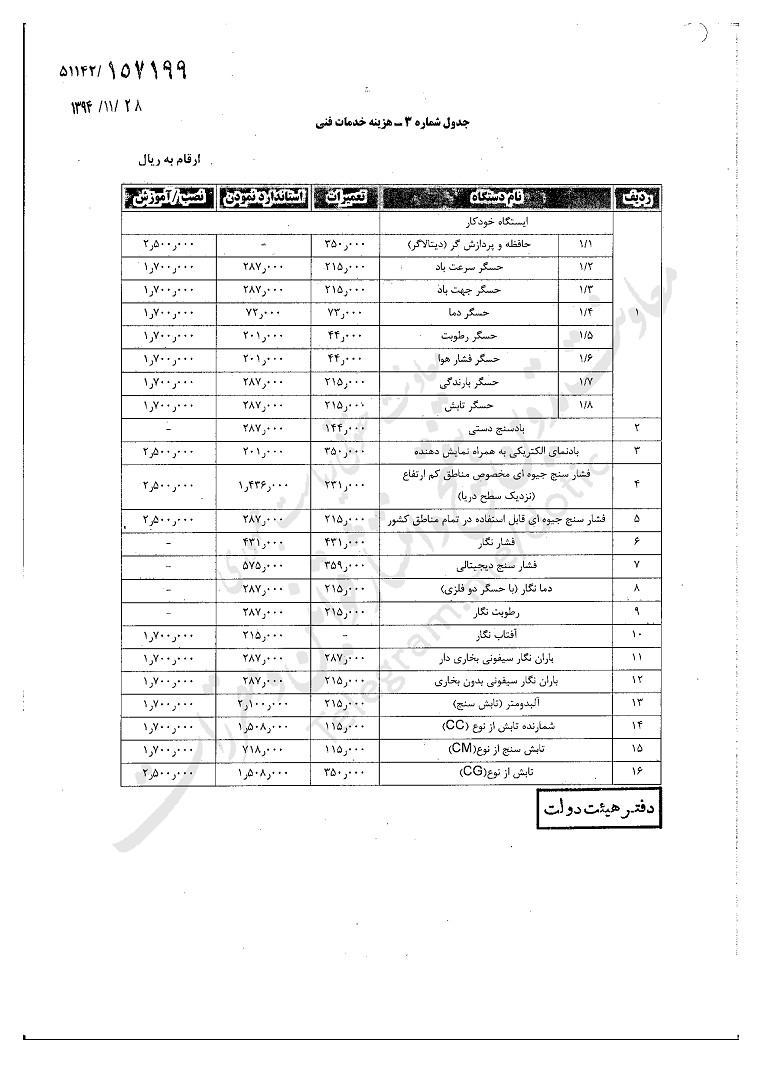 ۵۱۱۴۲/۱۵۷۱۹۹
۱۳۹۴/۱۱/۲۸
جدول شماره ۳ ــ هزینه خدمات فنی
ارقام به ریال
ردیف نام دستگاه تعمیرات استاندارد نمودن نصب/آموزش
۱ ایستگاه خودکار
۱/۱ حافظه و پردازش گر (دیتالاگر) ۳۵۰٫۰۰۰ - ۲٫۵۰۰٫۰۰۰
۱/۲ حسگر سرعت باد ۲۱۵٫۰۰۰ ۲۸۷٫۰۰۰ ۱٫۷۰۰٫۰۰۰
۱/۳ حسگر جهت باد ۲۱۵٫۰۰۰ ۲۸۷٫۰۰۰ ۱٫۷۰۰٫۰۰۰
۱/۴ حسگر دما ۷۳٫۰۰۰ ۷۲٫۰۰۰ ۱٫۷۰۰٫۰۰۰
۱/۵ حسگر رطوبت ۴۴٫۰۰۰ ۲۰۱٫۰۰۰ ۱٫۷۰۰٫۰۰۰
۱/۶ حسگر فشار هوا ۴۴٫۰۰۰ ۲۰۱٫۰۰۰ ۱٫۷۰۰٫۰۰۰
۱/۷ حسگر بارندگی ۲۱۵٫۰۰۰ ۲۸۷٫۰۰۰ ۱٫۷۰۰٫۰۰۰
۱/۸ حسگر تابش ۲۱۵٫۰۰۰ ۲۸۷٫۰۰۰ ۱٫۷۰۰٫۰۰۰
۲ بادسنج دستی ۱۴۴٫۰۰۰ ۲۸۷٫۰۰۰ -
۳ بادنمای الکتریکی به همراه نمایش دهنده ۳۵۰٫۰۰۰ ۲۰۱٫۰۰۰ ۲٫۵۰۰٫۰۰۰
۴ فشار سنج جیوه ای مخصوص مناطق کم ارتفاع ۲۳۱٫۰۰۰ ۱٫۴۳۶٫۰۰۰ ۲٫۵۰۰٫۰۰۰
(نزدیک سطح دریا)
۵ فشار سنج جیوه ای قابل استفاده در تمام مناطق کشور ۲۱۵٫۰۰۰ ۲۸۷٫۰۰۰ ۲٫۵۰۰٫۰۰۰
۶ فشار نگار ۴۳۱٫۰۰۰ ۴۳۱٫۰۰۰ -
۷ فشار سنج دیجیتالی ۳۵۹٫۰۰۰ ۵۷۵٫۰۰۰ -
۸ دما نگار (با حسگر دو فلزی) ۲۱۵٫۰۰۰ ۲۸۷٫۰۰۰ -
۹ رطوبت نگار ۲۱۵٫۰۰۰ ۲۸۷٫۰۰۰ -
۱۰ آفتاب نگار - ۲۱۵٫۰۰۰ ۱٫۷۰۰٫۰۰۰
۱۱ باران نگار سیفونی بخاری دار ۲۸۷٫۰۰۰ ۲۸۷٫۰۰۰ ۱٫۷۰۰٫۰۰۰
۱۲ باران نگار سیفونی بدون بخاری ۲۱۵٫۰۰۰ ۲۸۷٫۰۰۰ ۱٫۷۰۰٫۰۰۰
۱۳ آلبدومتر (تابش سنج) ۲۱۵٫۰۰۰ ۲٫۱۰۰٫۰۰۰ ۱٫۷۰۰٫۰۰۰
۱۴ شمارنده تابش از نوع (CC) ۱۱۵٫۰۰۰ ۱٫۵۰۸٫۰۰۰ ۱٫۷۰۰٫۰۰۰
۱۵ تابش سنج از نوع(CM) ۱۱۵٫۰۰۰ ۷۱۸٫۰۰۰ ۱٫۷۰۰٫۰۰۰
۱۶ تابش از نوع(CG) ۳۵۰٫۰۰۰ ۱٫۵۰۸٫۰۰۰ ۲٫۵۰۰٫۰۰۰
دفتر هیئت دولت